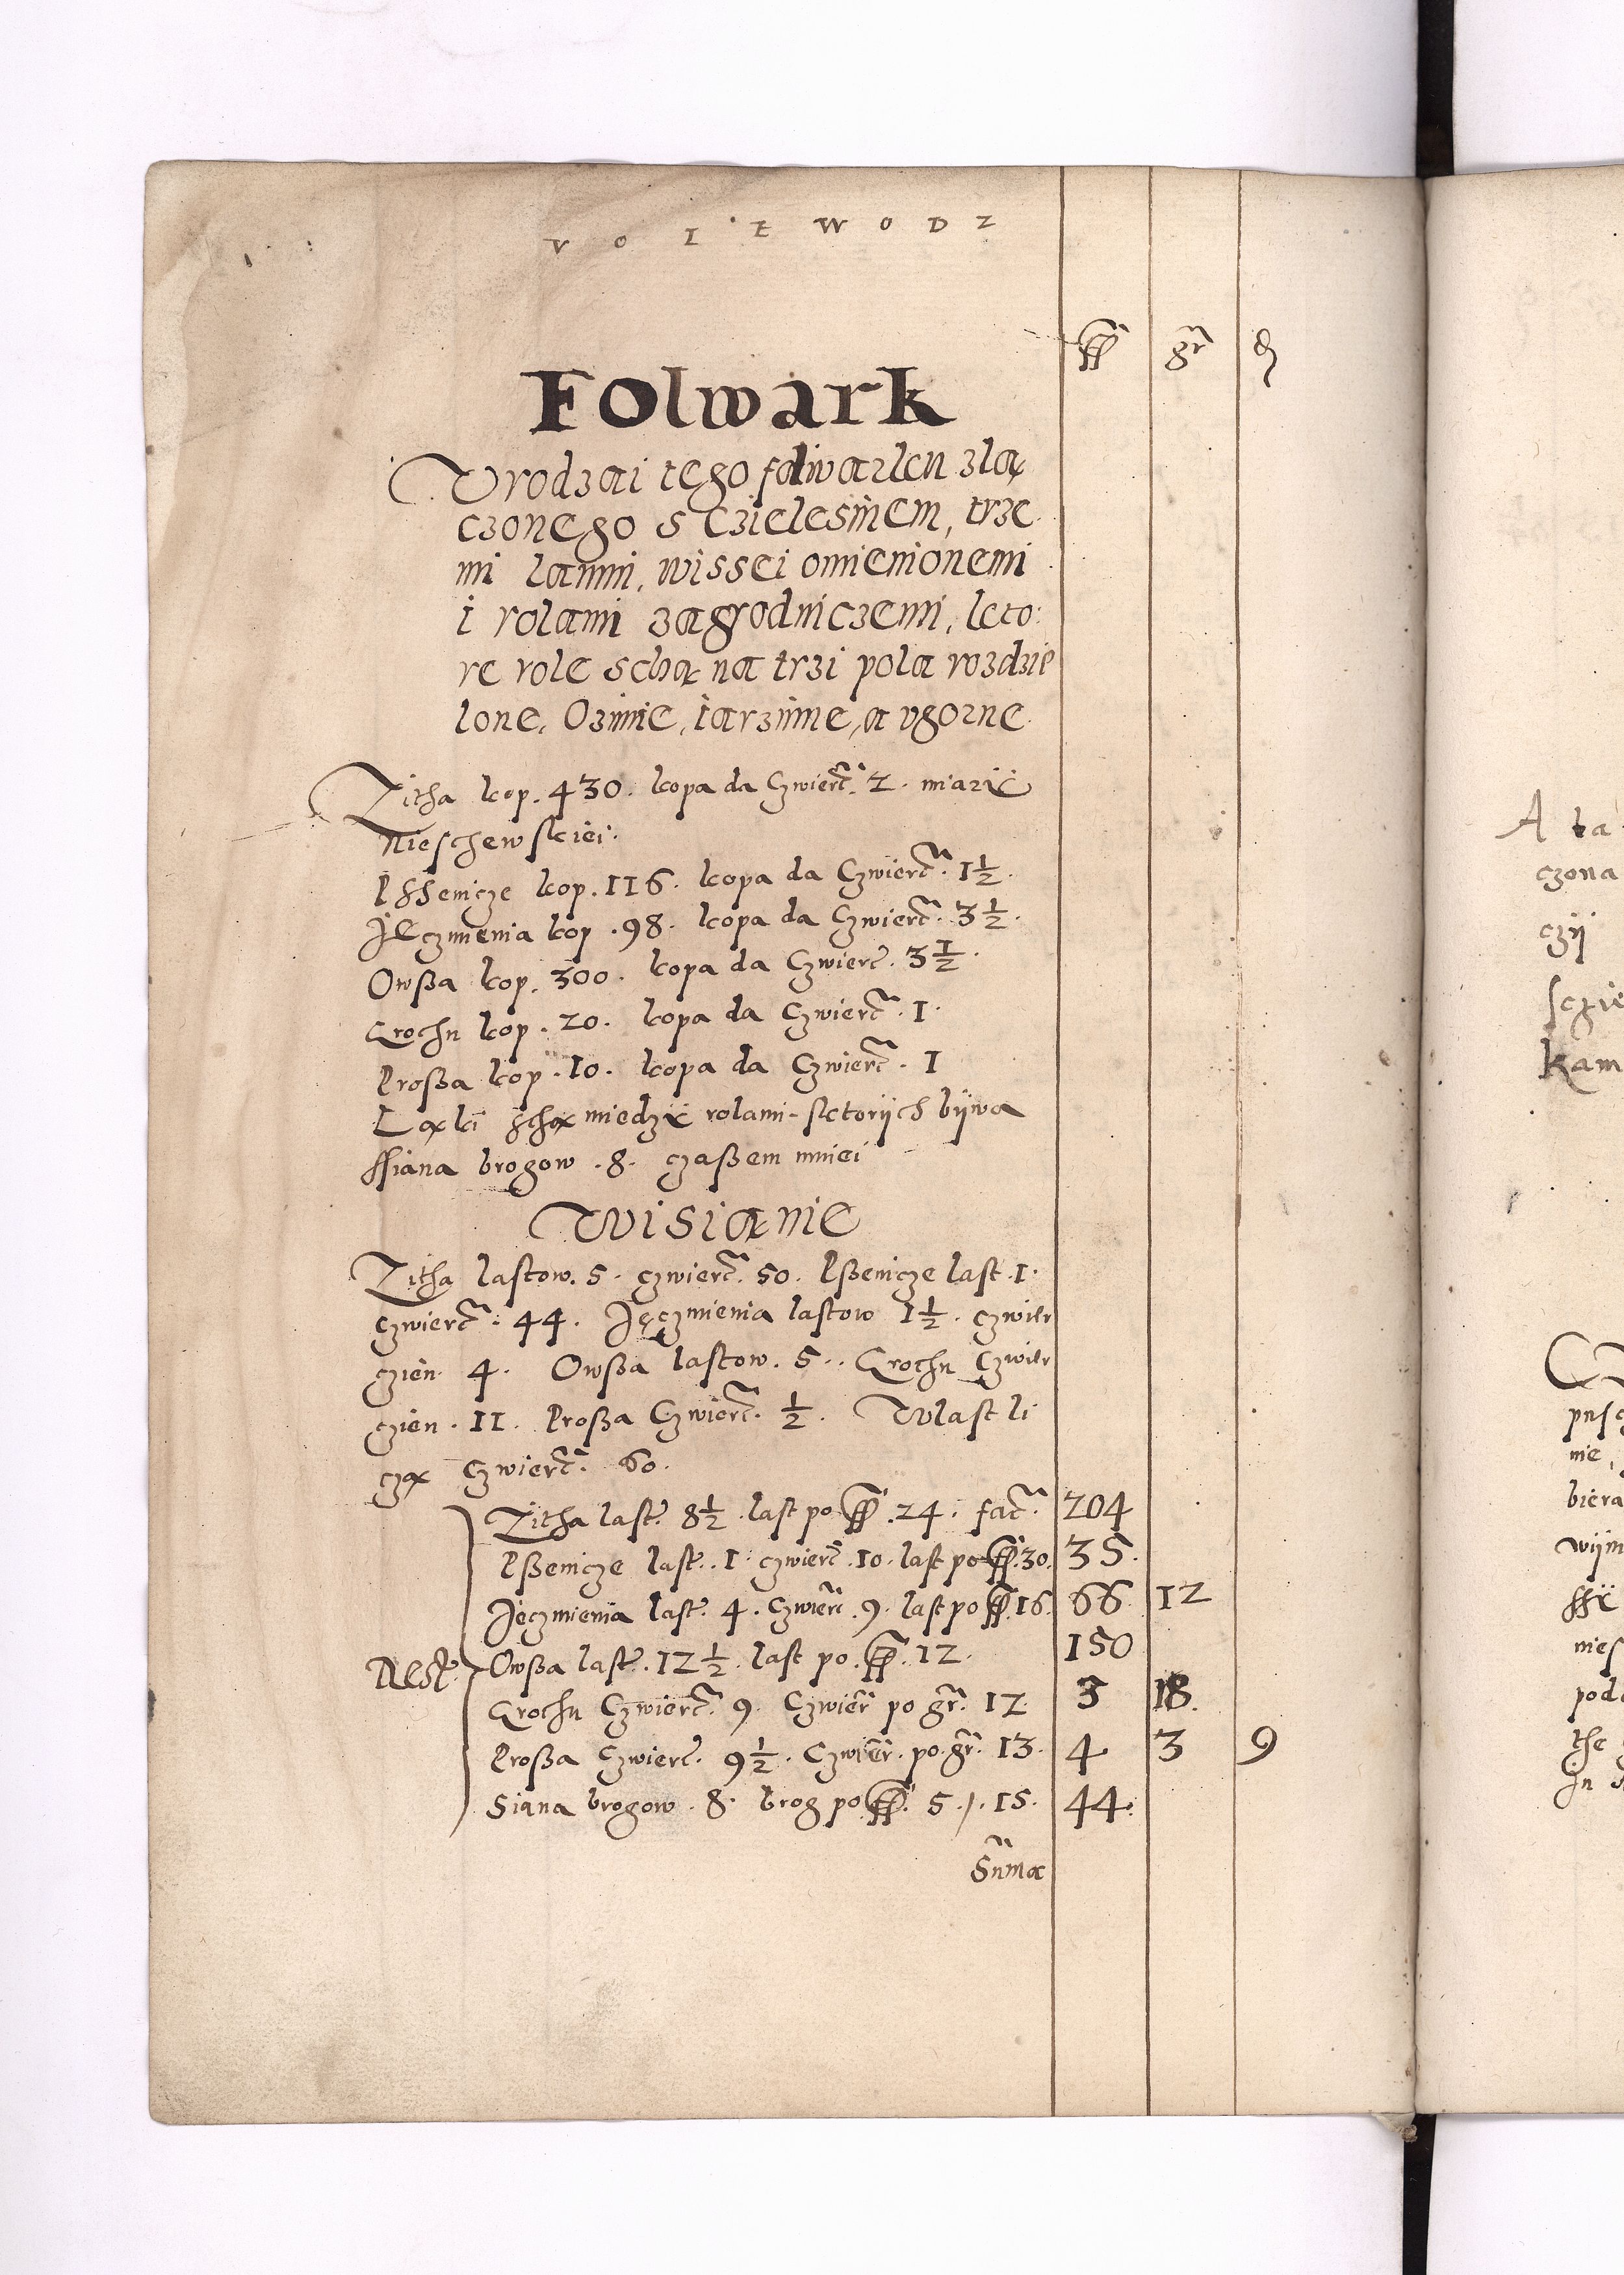 VOIEWODZ
ff gr ₰
Folwark
Vrodzai tego folwarku zlą
czonego s Czielesinem, trze
mi lanmi, wissei omienionemi
i rolami zagrodniczemi, kto:
re role scha na trzi pola rozdzie
lone, Ozimie, iarzime, a vgorne
Zitha kop. 430. kopa da Czwierc. 2. miarij
Nieschewskiei.
Pssenicze kop. 116. kopa da Czwierc. 1½.
Jęczmienia kop. 98. kopa da Czwierc. 3½.
Owßa kop. 300. kopa da Czwierc. 3½.
Grochu kop. 20. kopa da Czwierc. 1.
Proßa kop. 10. kopa da Czwierc. 1
Ląki schą miedzij rolami sktorijch bijwa
ssiana brogow .8. czaßem mniei
Wisianie
Zitha lastow. 5. czwierc. 50. Pßenicze last. 1.
czwierc. 44. Jęczmienia lastow 1½. czwier
czien 4. Owßa lastow. 5.. Grochu Czwier
czien. 11. Proßa Czwierc. ½. W last li
czą Czwierc. 60.
Zitha last. 8½. last po ff .24. fac. 204
Pßenicze last. 1. czwierc. 10. last po ff. 30. 35.
Jęczmienia last. 4. Czwierc. 9. last po ff 16. 66 12
Rest. Owßa last. 12½. last po ff. 12. 150
Grochu Czwierc. 9. Czwier po gr. 12 3 18.
Proßa Czwierc. 9½. Czwier. po gr. 13. 4 3 9
Siana brogow .8. brog po ff. 5./. 15. 44.
Suma
A ta
czona
czij
kam
nie,
biera
wijm
nies
the